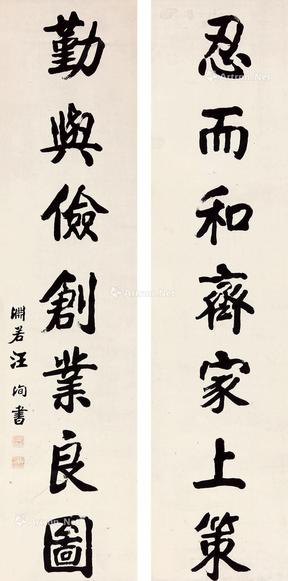 忍而和齊家上策
勤與儉創業良圖
淵若汪洵書